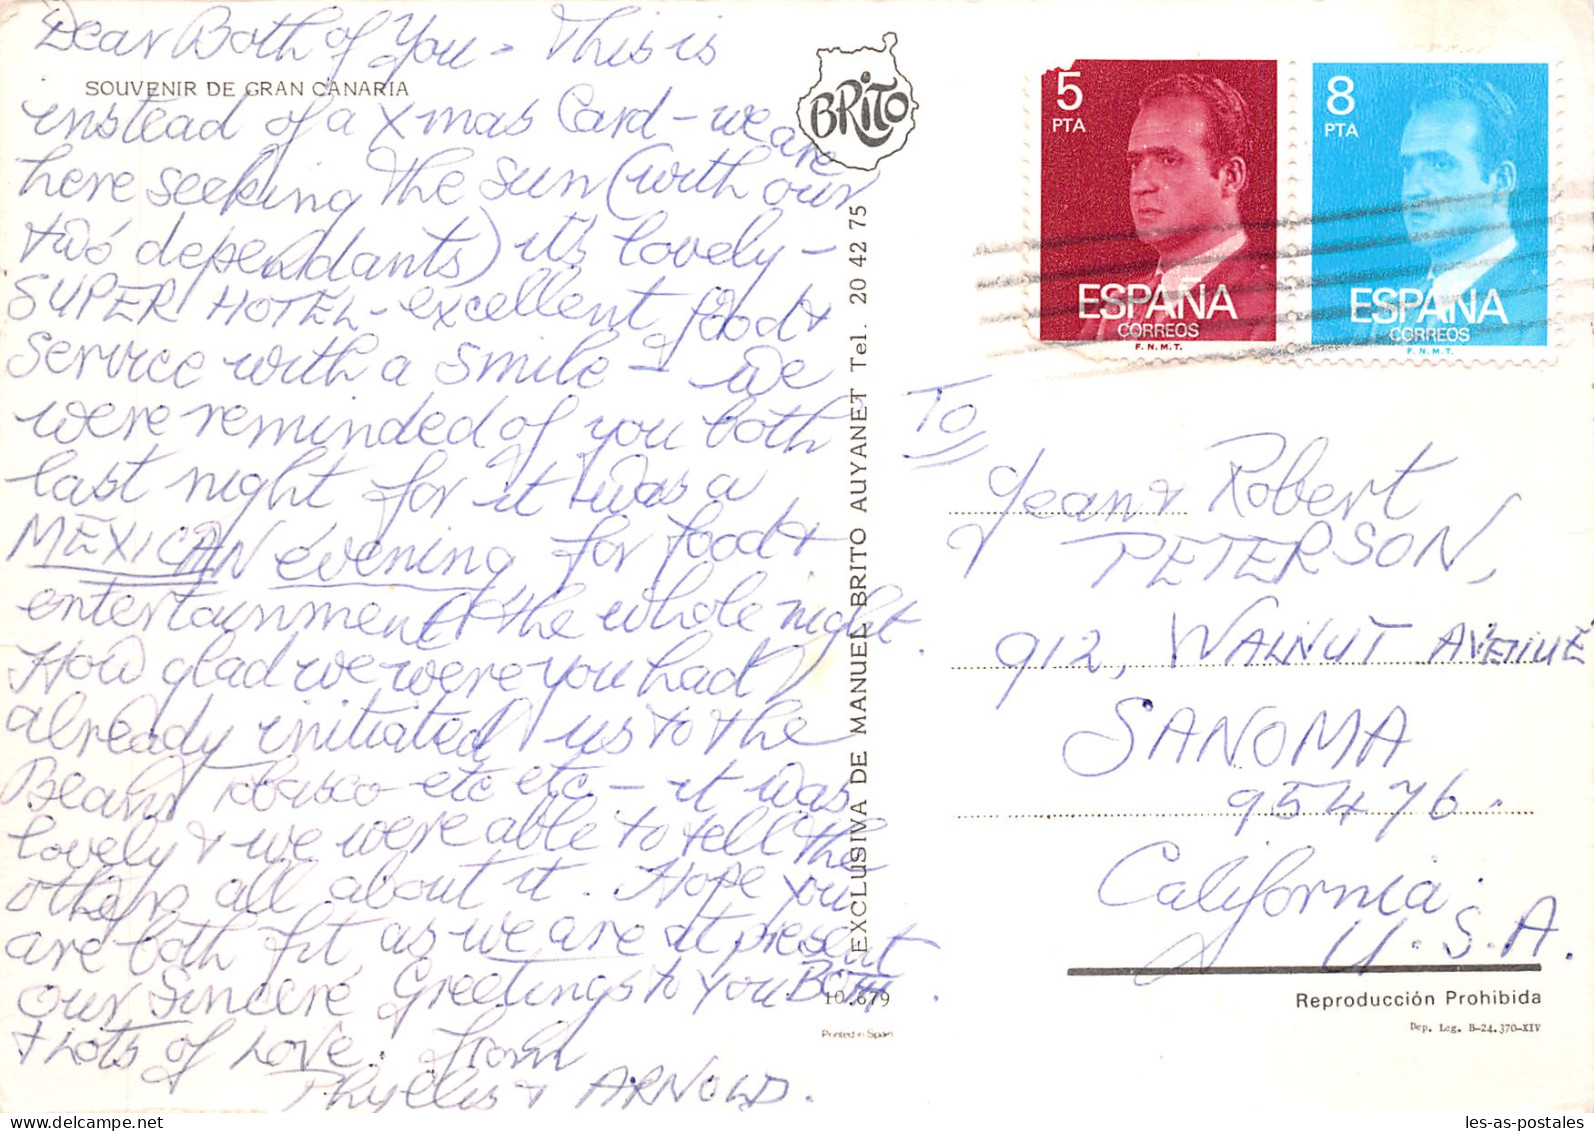 Dear Both of You - This is
SOUVENIR DE GRAN CANARIA
instead of a Xmas Card - we are
here seeking the sun (with our
two dependants) its lovely -
SUPER HOTEL - excellent food &
service with a smile - we
were reminded of you both
last night for it was a
MEXICAN evening for food &
entertainment the whole night.
How glad we were you had
already initiated us to the
Beans Tobasco etc etc - it was
lovely & we were able to tell the
others all about it. Hope you
are both fit as we are at present
our Sincere Greetings to you BOTH.
& Lots of Love. from
Phyllis & ARNOLD.
BRITO
EXCLUSIVA DE MANUEL BRITO AUYANET Tel. 20 42 75
10.679
Printed in Spain
5
PTA
ESPAÑA
CORREOS
F.N.M.T.
8
PTA
ESPAÑA
CORREOS
F.N.M.T.
To
Jean & Robert
PETERSON,
912, WALNUT AVENUE
SANOMA
95476.
California
U.S.A.
Reproducción Prohibida
Dep. Leg. B-24.370-XIV
les-as-postales.com